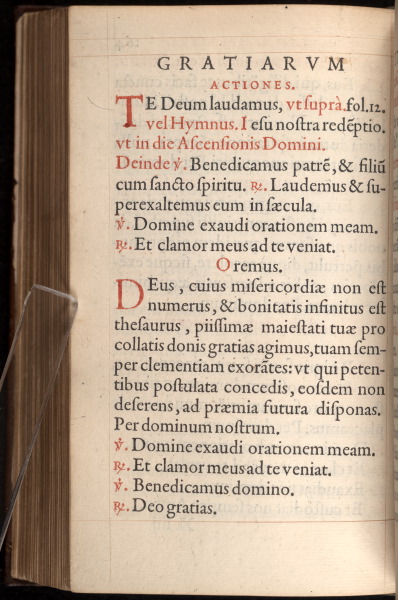 GRATIARVM
ACTIONES.
TE Deum laudamus, vt suprà.fol.12.
vel Hymnus. Iesu nostra redẽptio.
vt in die Ascensionis Domini.
Deinde ℣. Benedicamus patrẽ, & filiũ
cum sancto spiritu. ℟. Laudemus & su-
perexaltemus eum in sæcula.
℣. Domine exaudi orationem meam.
℟. Et clamor meus ad te veniat.
Oremus.
DEus, cuius misericordiæ non est
numerus, & bonitatis infinitus est
thesaurus, piissimæ maiestati tuæ pro
collatis donis gratias agimus, tuam sem-
per clementiam exorãtes: vt qui peten-
tibus postulata concedis, eosdem non
deserens, ad præmia futura disponas.
Per dominum nostrum.
℣. Domine exaudi orationem meam.
℟. Et clamor meus ad te veniat.
℣. Benedicamus domino.
℟. Deo gratias.